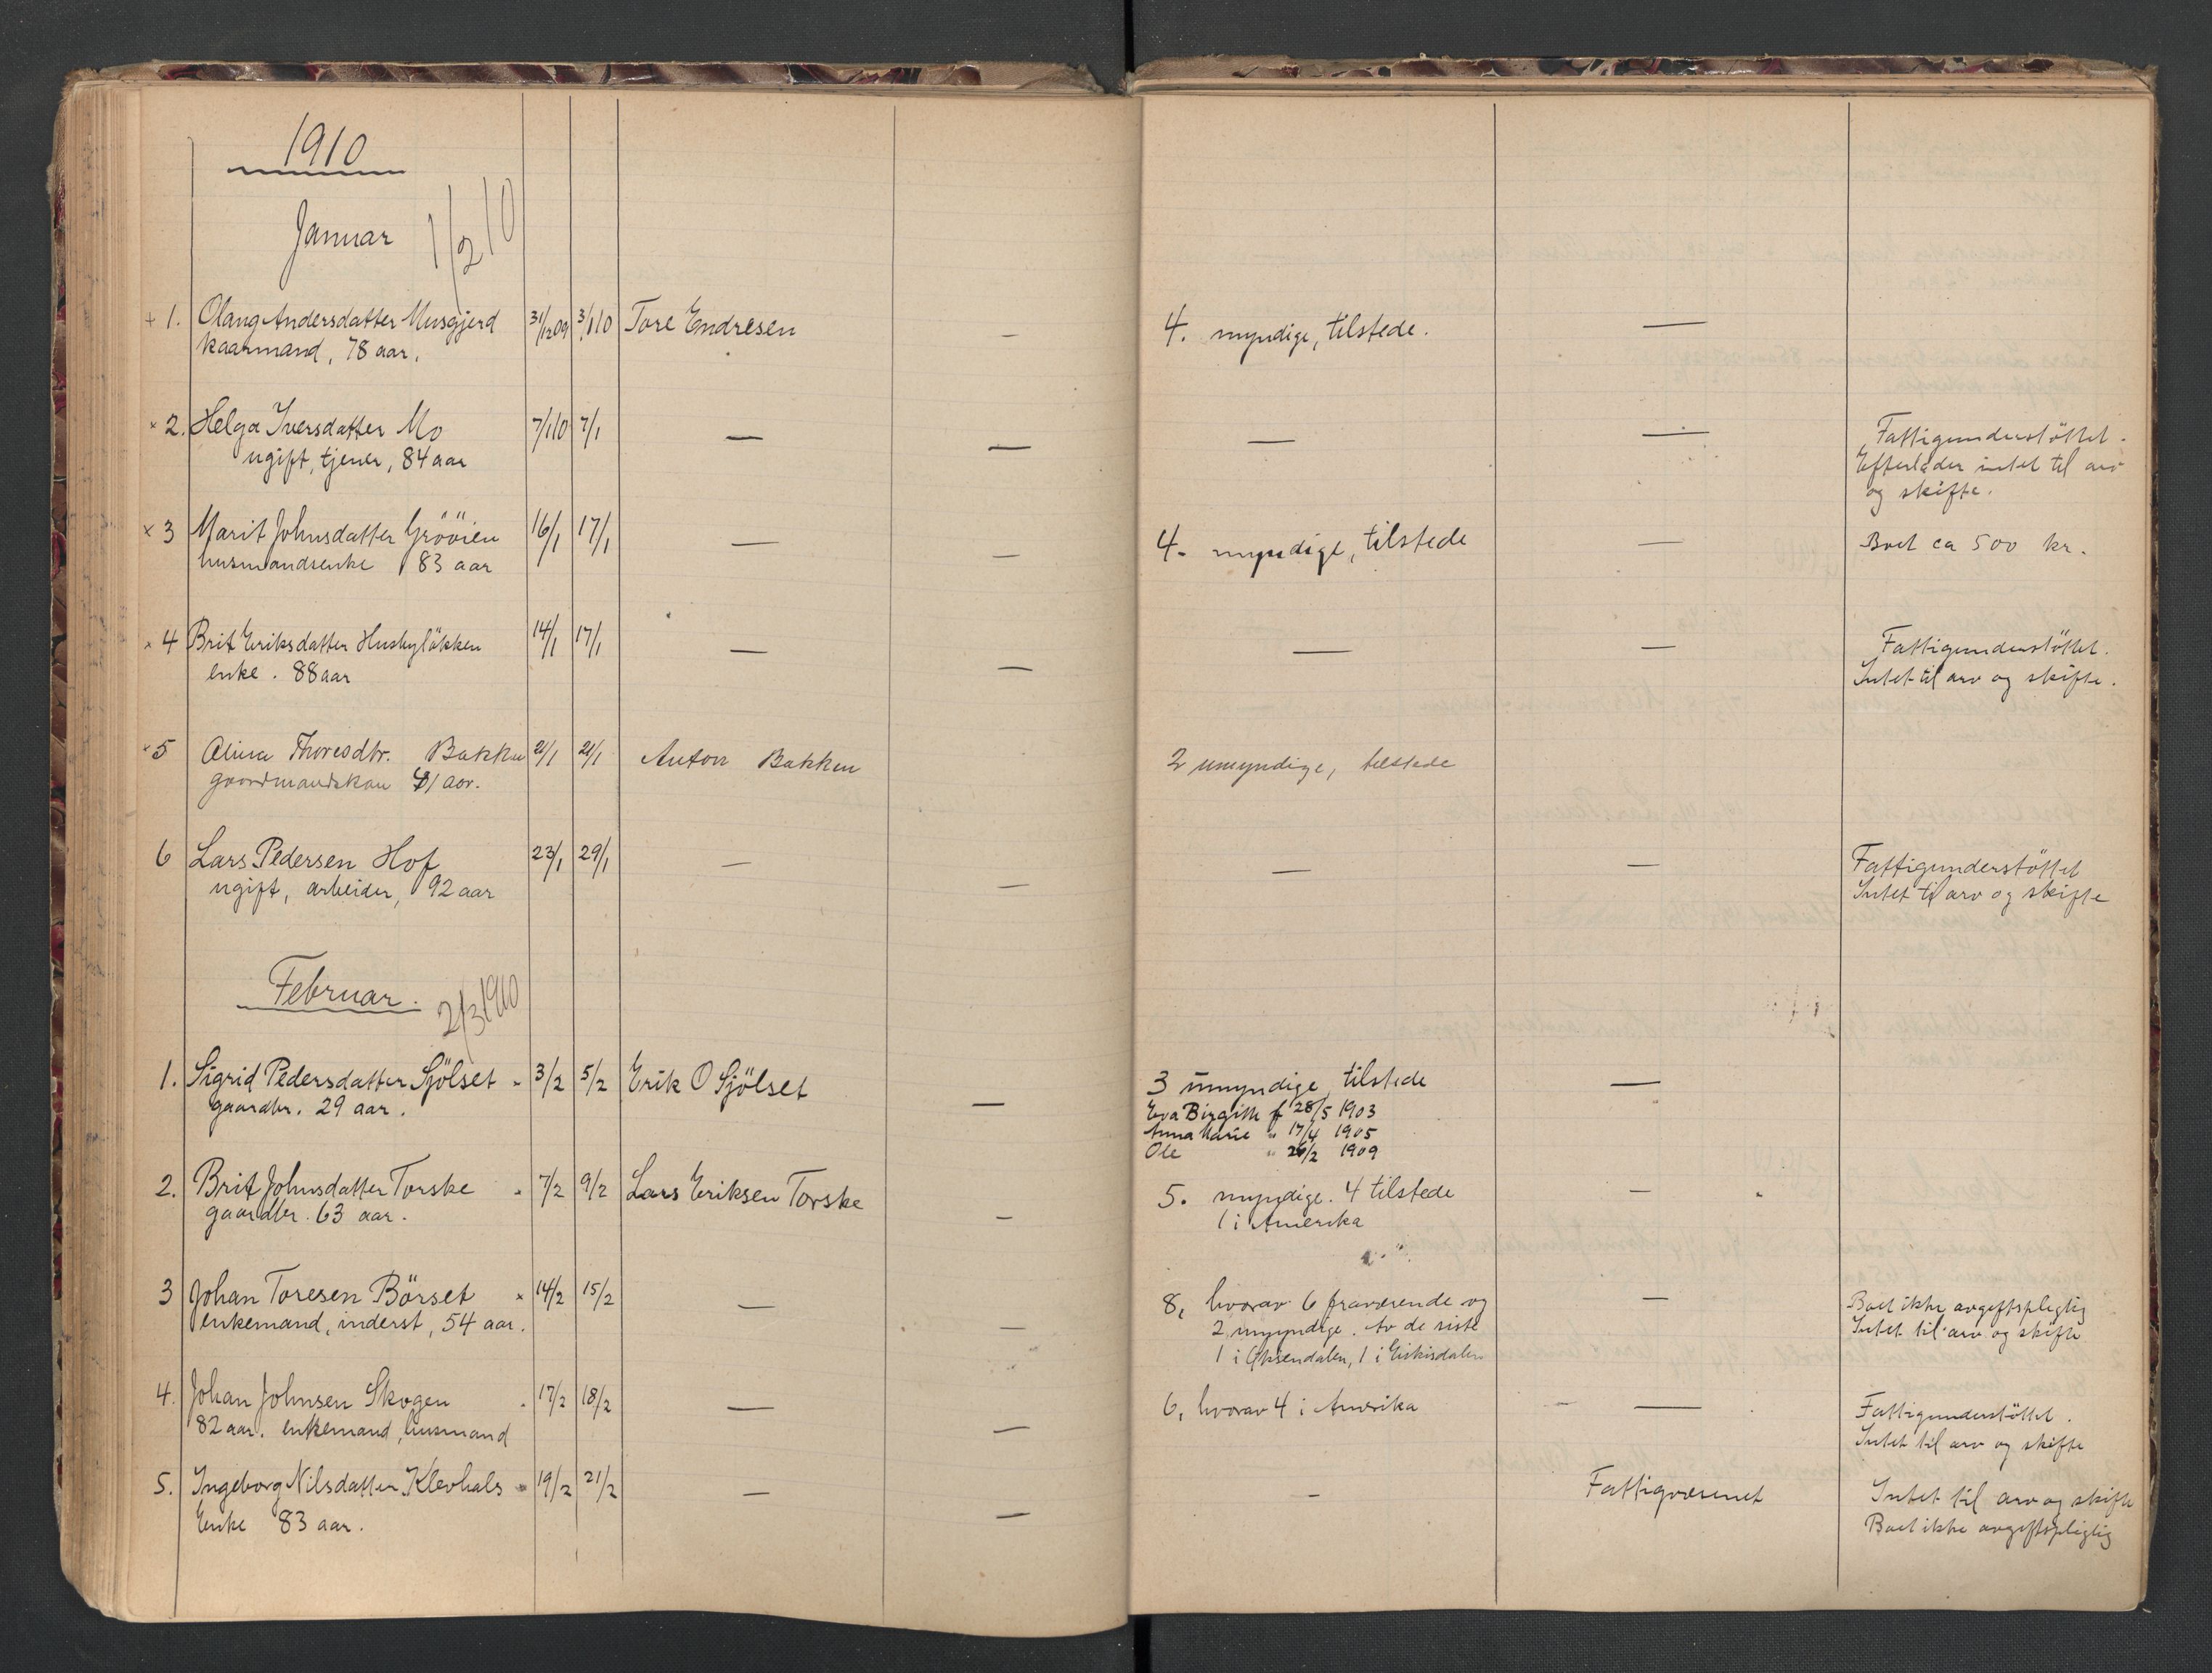 1910
Januar 1/2 10
+ 1. Olaug Andersdatter Musgjerd 31/12 09 3/1 10 Tore Endresen — 4. myndige, tilstede. —
kaarmand, 78 aar.
× 2. Helga Iversdatter Mo 7/1 10 7/1 — — — — Fattigunderstöttet.
ugift, tjener, 84 aar Efterlader intet til arv
og skifte.
× 3 Marit Johnsdatter Grööien 16/1 17/1 — — 4. myndige, tilstede — Boet ca 500 kr.
husmandsenke 83 aar
× 4 Brit Eriksdatter Husbylökken 14/1 17/1 — — — — Fattigunderstöttet.
enke. 88 aar Intet til arv og skifte.
× 5 Olina Thoresdtr. Bakken 21/1 21/1 Anton Bakken 2 umyndige, tilstede
gaardmandskone 41 aar.
6 Lars Pedersen Hof 23/1 29/1 — — — — Fattigunderstöttet
ugift, arbeider, 92 aar Intet til arv og skifte
Februar. 2/3 1910
1. Sigrid Pedersdatter Sjölset - 3/2 5/2 Erik O Sjölset — 3 umyndige, tilstede —
gaardbr. 29 aar. Eva Birgith f 28/5 1903
Anna Marie " 17/4 1905
Ole " 26/2 1909
2. Brit Johnsdatter Torske . 7/2 9/2 Lars Eriksen Torske — 5. myndige. 4 tilstede —
gaardbr. 63 aar. 1 i Amerika
3 Johan Toresen Börset × 14/2 15/2 — — 8, hvorav 6 fraværende og — Boet ikke avgiftspligtig
enkemand, inderst, 54 aar. 2 myyndige. Av de siste Intet til arv og skifte
1 i Öksendalen, 1 i Eikisdalen
4. Johan Johnsen Skogen . 17/2 18/2 — — 6, hvorav 4 i Amerika — Fattigunderstöttet.
82 aar. enkemand, husmand Intet til arv og skifte
5. Ingeborg Nilsdatter Klevhals 19/2 21/2 — — — Fattigvæsenet Intet til arv og skifte
Enke 83 aar. Boet ikke avgiftspligtig